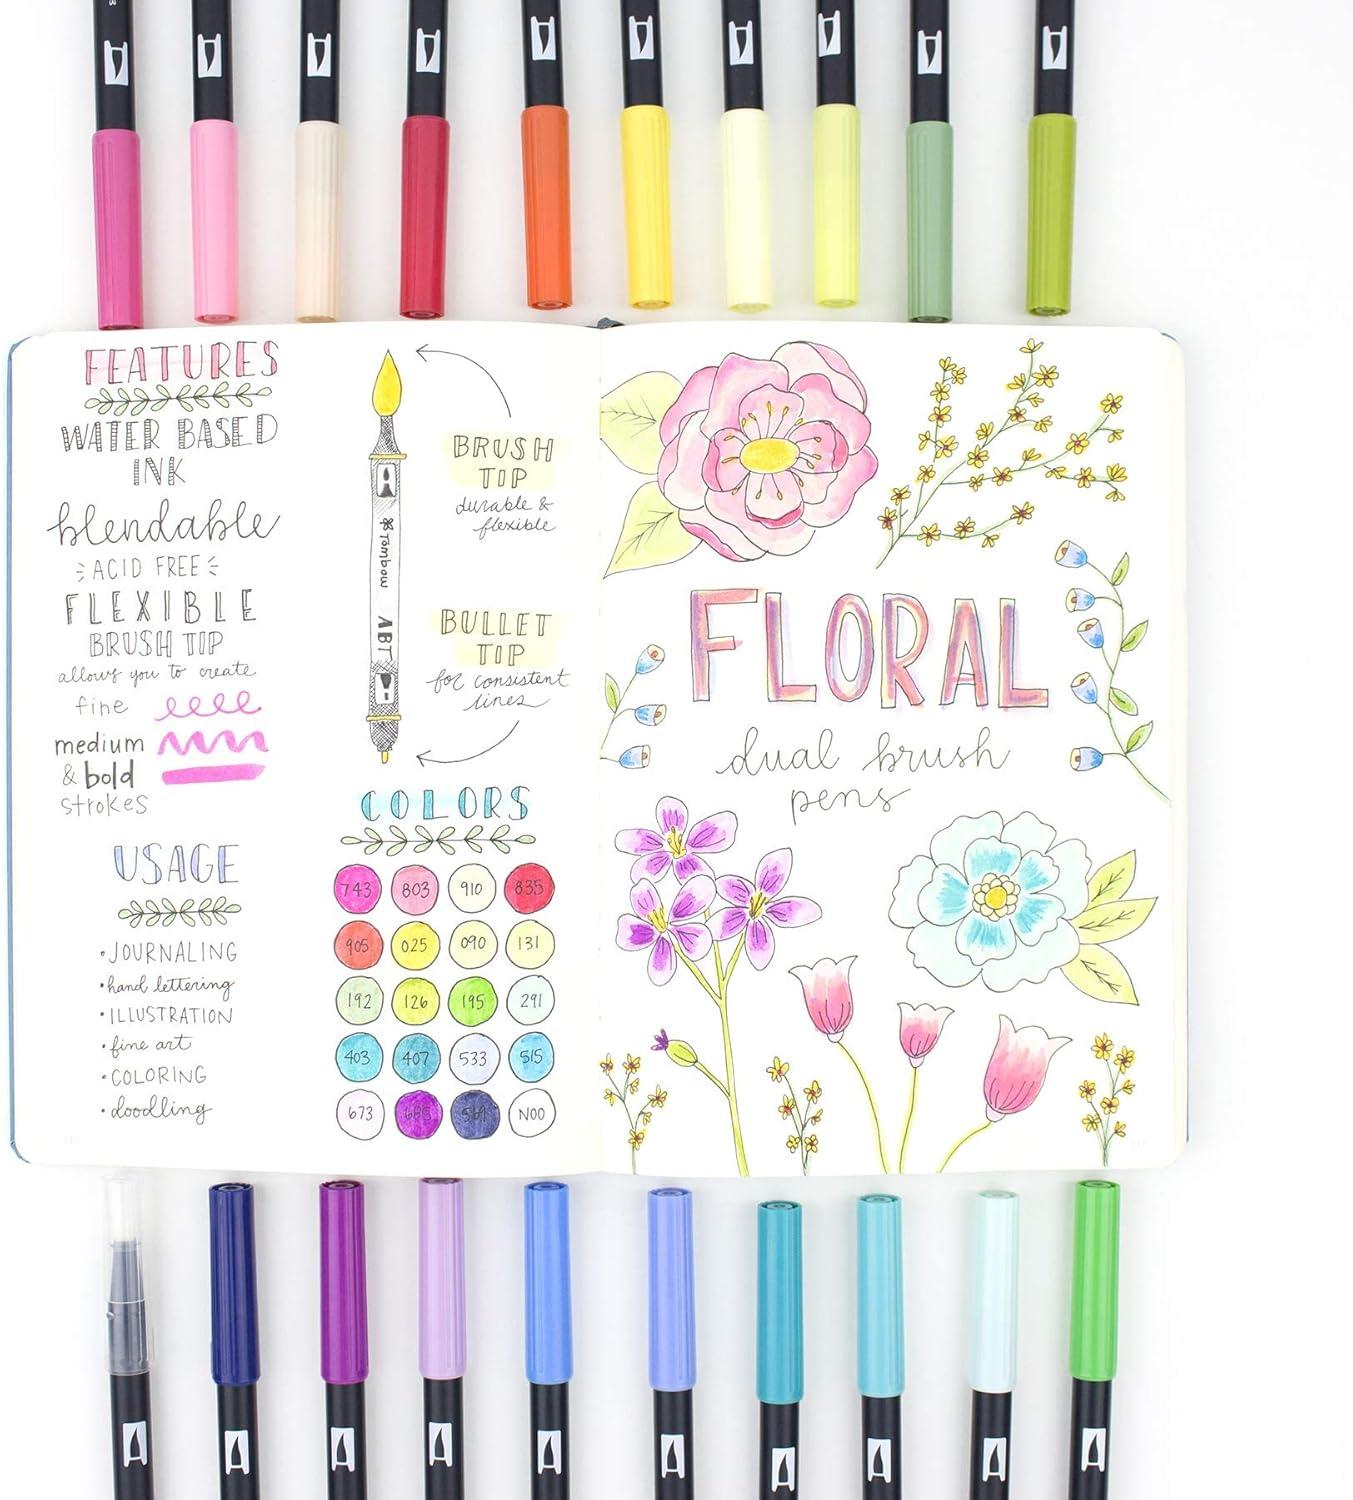 FEATURES
WATER BASED
INK
blendable
ACID FREE
FLEXIBLE
BRUSH TIP
allows you to create
fine
medium
& bold
strokes
USAGE
• JOURNALING
• hand lettering
• ILLUSTRATION
• fine art
• COLORING
• doodling
BRUSH
TIP
durable &
flexible
Tombow ABT
BULLET
TIP
for consistent
lines
COLORS
743 803 910 835
905 025 090 131
192 126 195 291
403 407 533 515
673 685 569 N00
FLORAL
dual brush
pens